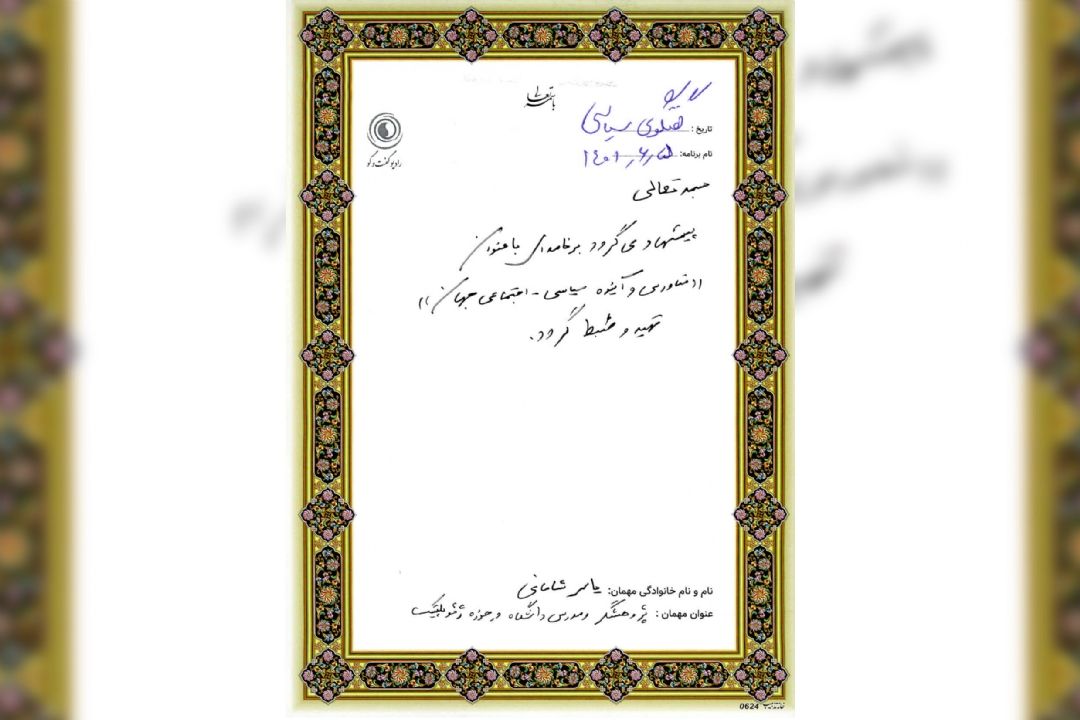 باسمه تعالی
رادیو گفت و گو
تاریخ : گفتگوی سیاسی
نام برنامه:
بسمه تعالی
پیشنهاد می گردد برنامه ای با عنوان
((فناوری و آینده سیاسی - اجتماعی جهان))
تهیه و ضبط گردد.
نام و نام خانوادگی مهمان: یاسر شامانی
عنوان مهمان : پژوهشگر و مدرس دانشگاه در حوزه ژئوپلیتیک
0624